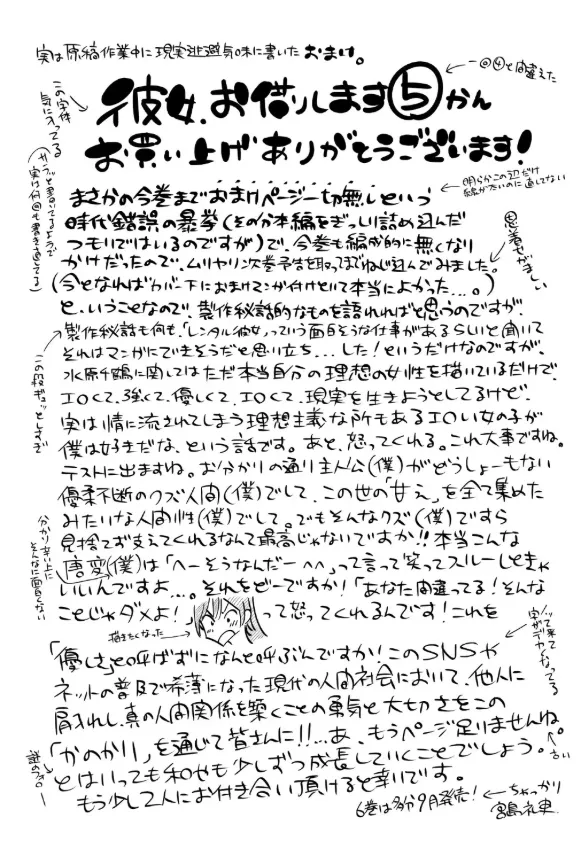 実は原稿作業中に現実逃避気味に書いたおまけ。
←一回④と間違えた
彼女、お借りします⑤かん
お買い上げありがとうございます!
この字体気に入ってる
サラッと書いてるようで実は何回も書き直してる
まさかの今巻までおまけページ一切無しという
←明らかにこの辺だけ線がたいのに直してない
時代錯誤の暴挙(その分本編をぎっしり詰め込んだ
つもりではいるのですが)で、今巻も編成的に無くなり
かけだったので、ムリヤリ次巻予告を取ってまでねじ込んでみました。
恩着せがましい
(今となればカバー下におまけマンガ付けといて本当によかった…。)
と、いうことなので、製作秘話的なものを語れればと思うのですが、
製作秘話も何も、「レンタル彼女」っていう面白そうな仕事があるらしいと聞いて
それはマンガにできそうだと思い立ち…した!というだけなのですが、
この段ギュッとしすぎ
水原千鶴に関してはただ本当自分の理想の女性を描いているだけで、
エロくて、強くて、優しくて、エロくて、現実を生きようとしてるけど、
実は情に流されてしまう理想主義な所もあるエロい女の子が
僕は好きだな、という話です。あと、怒ってくれる。これ大事ですね。
テストに出ますね。お分かりの通り主人公(僕)がどうしょーもない
優柔不断のクズ人間(僕)でして、この世の「甘え」を全て集めた
みたいな人間性(僕)でして。でもそんなクズ(僕)ですら
見捨てず支えてくれるなんて最高じゃないですか!!本当こんな
唐変(僕)は「へーそうなんだー^^」って言って笑ってスルーしときゃ
分かり辛い上にそんなに面白くない
いいんですよ…。それをどーですか!「あなた間違ってる!そんな
ことじゃダメよ!」って怒ってくれるんです!これを
描きたくなった→
ノッて来て字がデカくなってる
「優しさ」と呼ばずになんと呼ぶんですか!このSNSや
ネットの普及で希薄になった現代の人間社会において、他人に
肩入れし、真の人間関係を築くことの勇気と大切さをこの
「かのかり」を通じて皆さんに!!…あ、もうページ足りませんね。
とはいっても和也も少しずつ成長していくことでしょう。
謎のフォロー
もう少し2人にお付き合い頂けると幸いです。
6巻は多分9月発売!←ちゃっかり
宮島礼吏